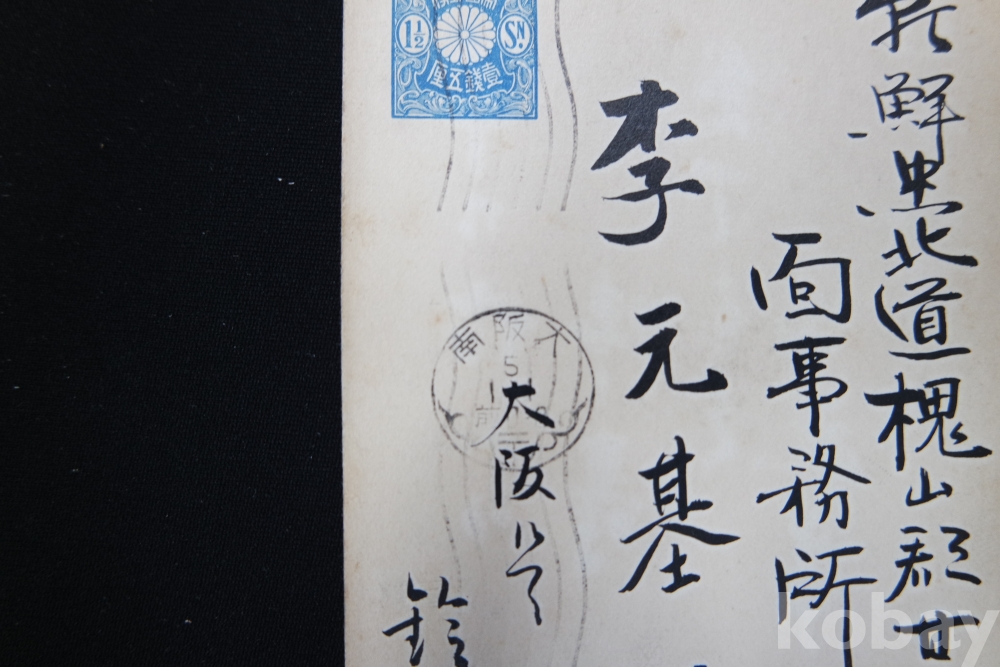 朝鮮忠北道槐山郡甘
面事務所
李元基
1½ SN.
壹錢五厘
大阪南
5
大阪
鈴
kobay